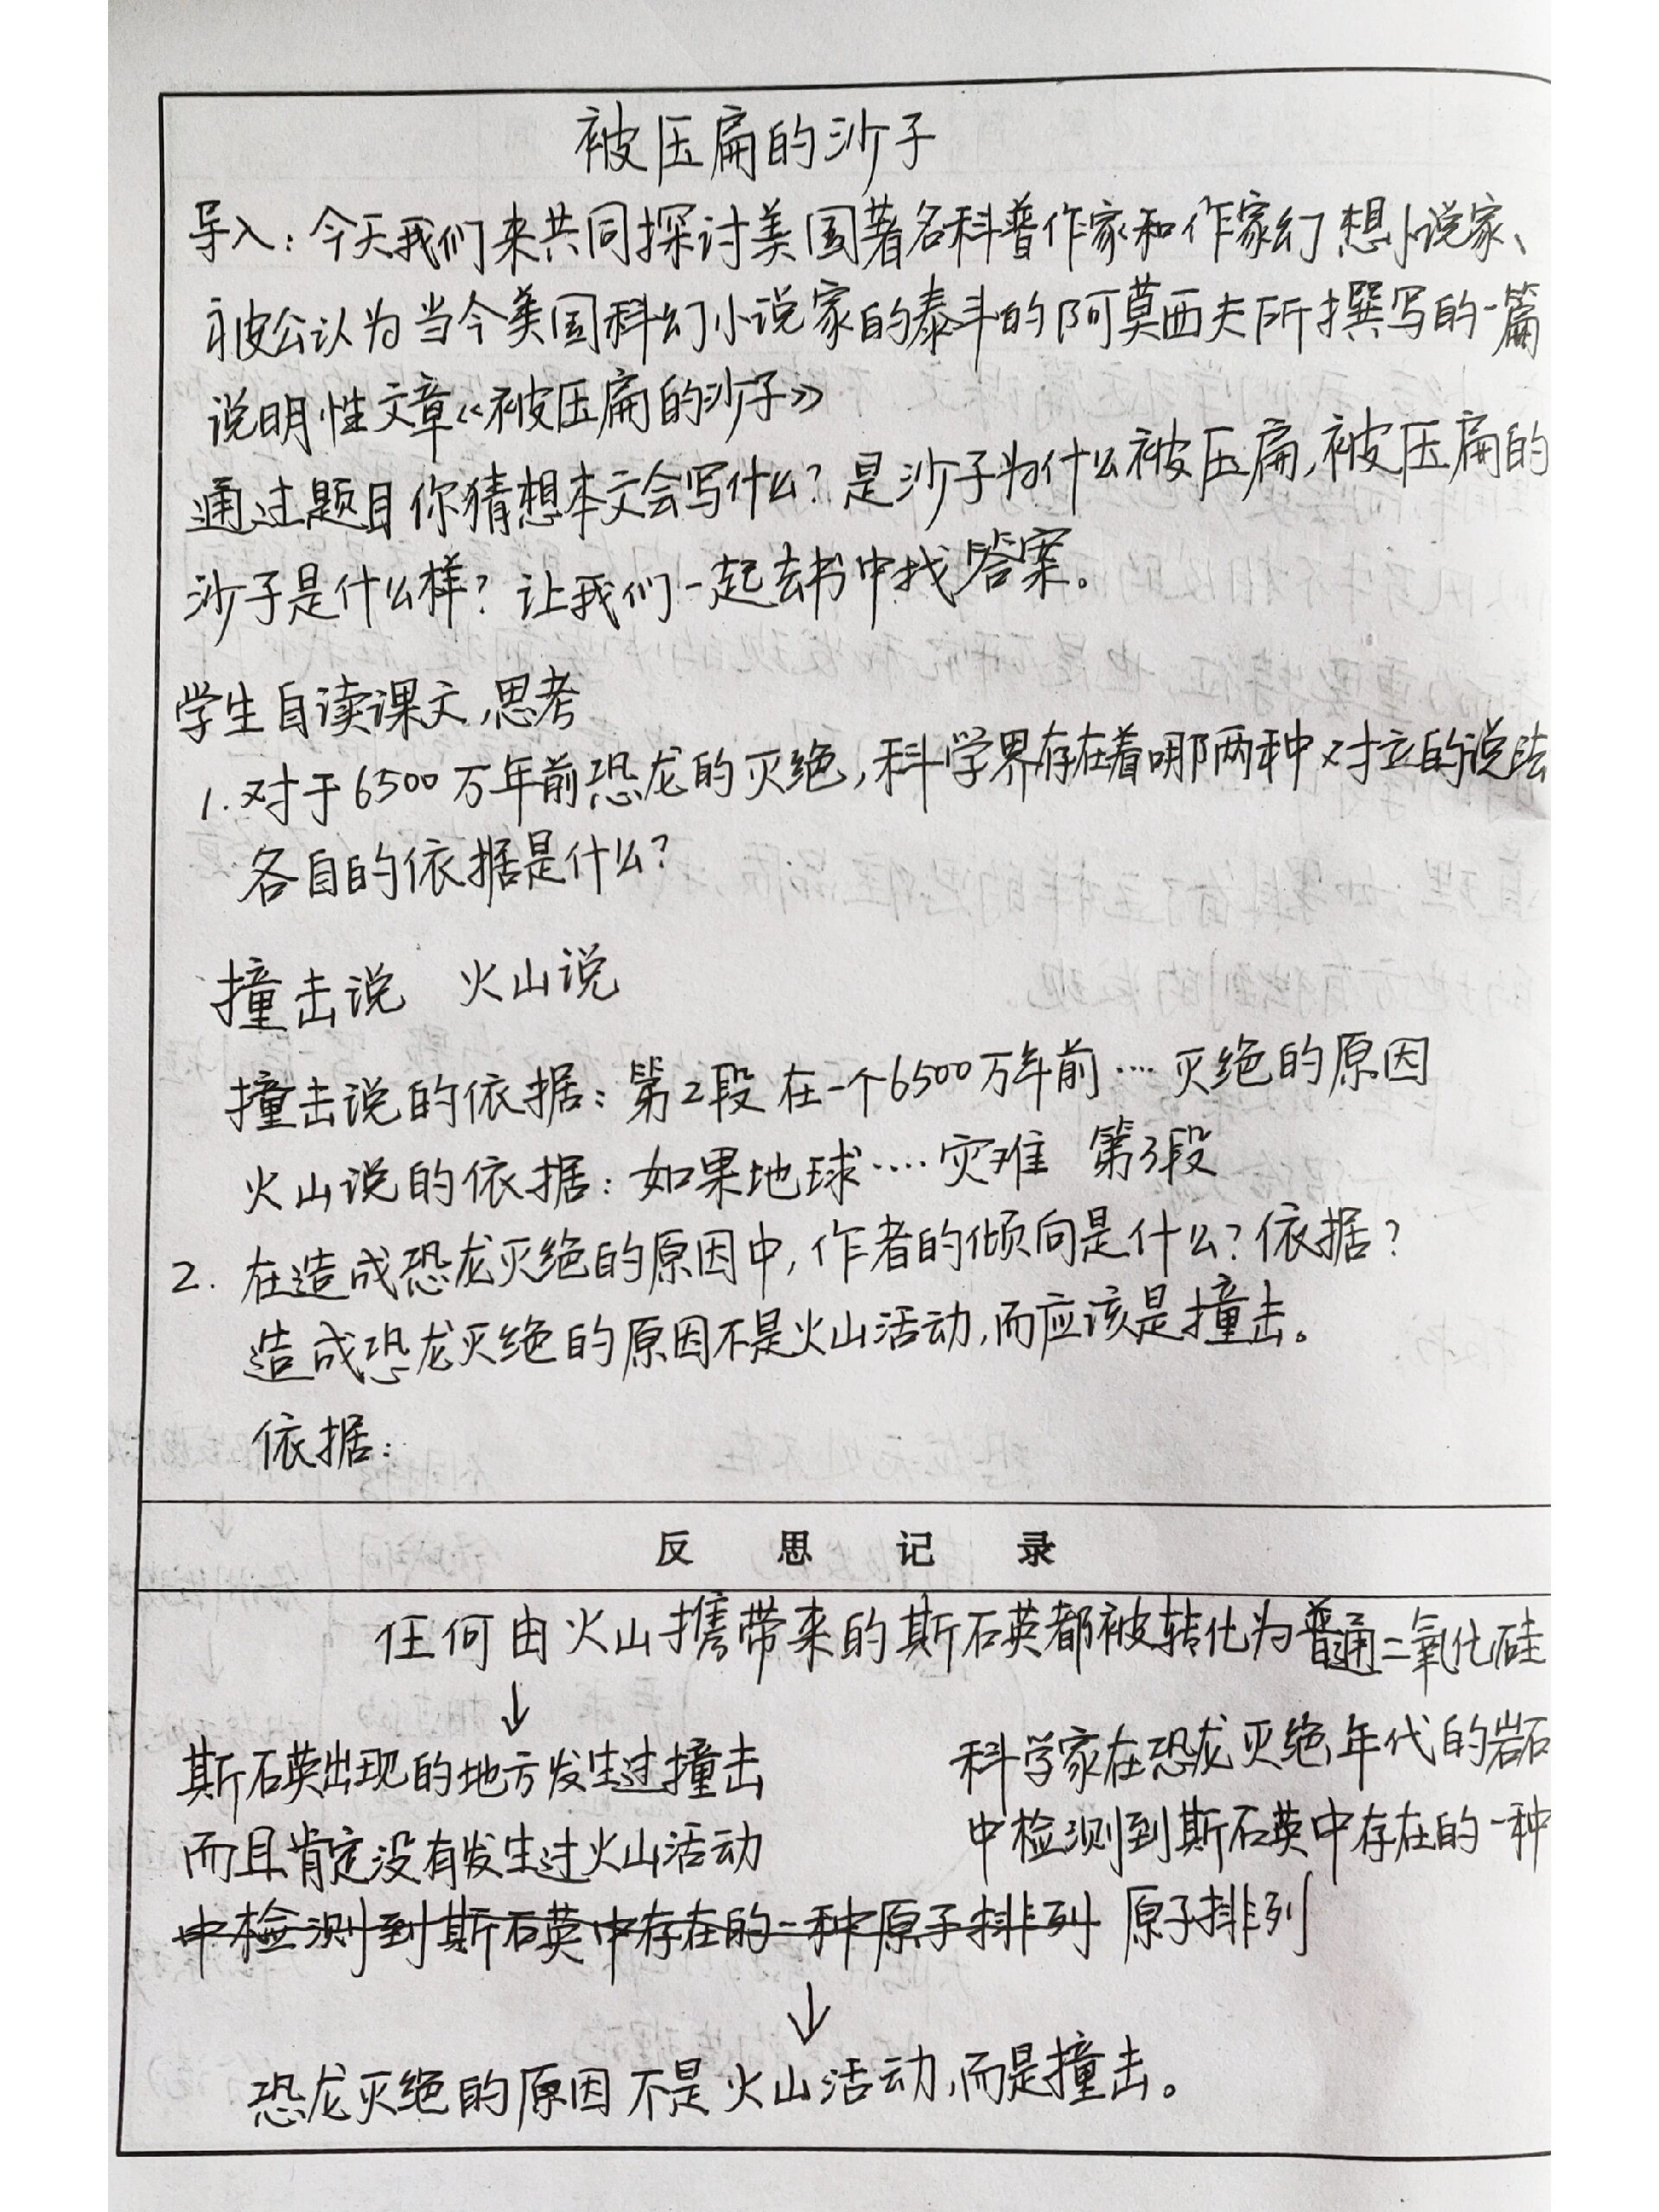 被压扁的沙子
导入：今天我们来共同探讨美国著名科普作家和作家幻想小说家、
被公认为当今美国科幻小说家的泰斗的阿莫西夫所撰写的一篇
说明性文章《被压扁的沙子》
通过题目你猜想本文会写什么？是沙子为什么被压扁，被压扁的
沙子是什么样？让我们一起去书中找答案。
学生自读课文，思考
1. 对于6500万年前恐龙的灭绝，科学界存在着哪两种对立的说法
各自的依据是什么？
撞击说 火山说
撞击说的依据：第2段 在一个6500万年前····灭绝的原因
火山说的依据：如果地球····灾难 第3段
2. 在造成恐龙灭绝的原因中，作者的倾向是什么？依据？
造成恐龙灭绝的原因不是火山活动，而应该是撞击。
依据：
反思记录
任何由火山携带来的斯石英都被转化为普通二氧化硅
↓
斯石英出现的地方发生过撞击 科学家在恐龙灭绝年代的岩石
而且肯定没有发生过火山活动 中检测到斯石英中存在的一种
中检测到斯石英中存在的一种原子排列 原子排列
↓
恐龙灭绝的原因不是火山活动，而是撞击。